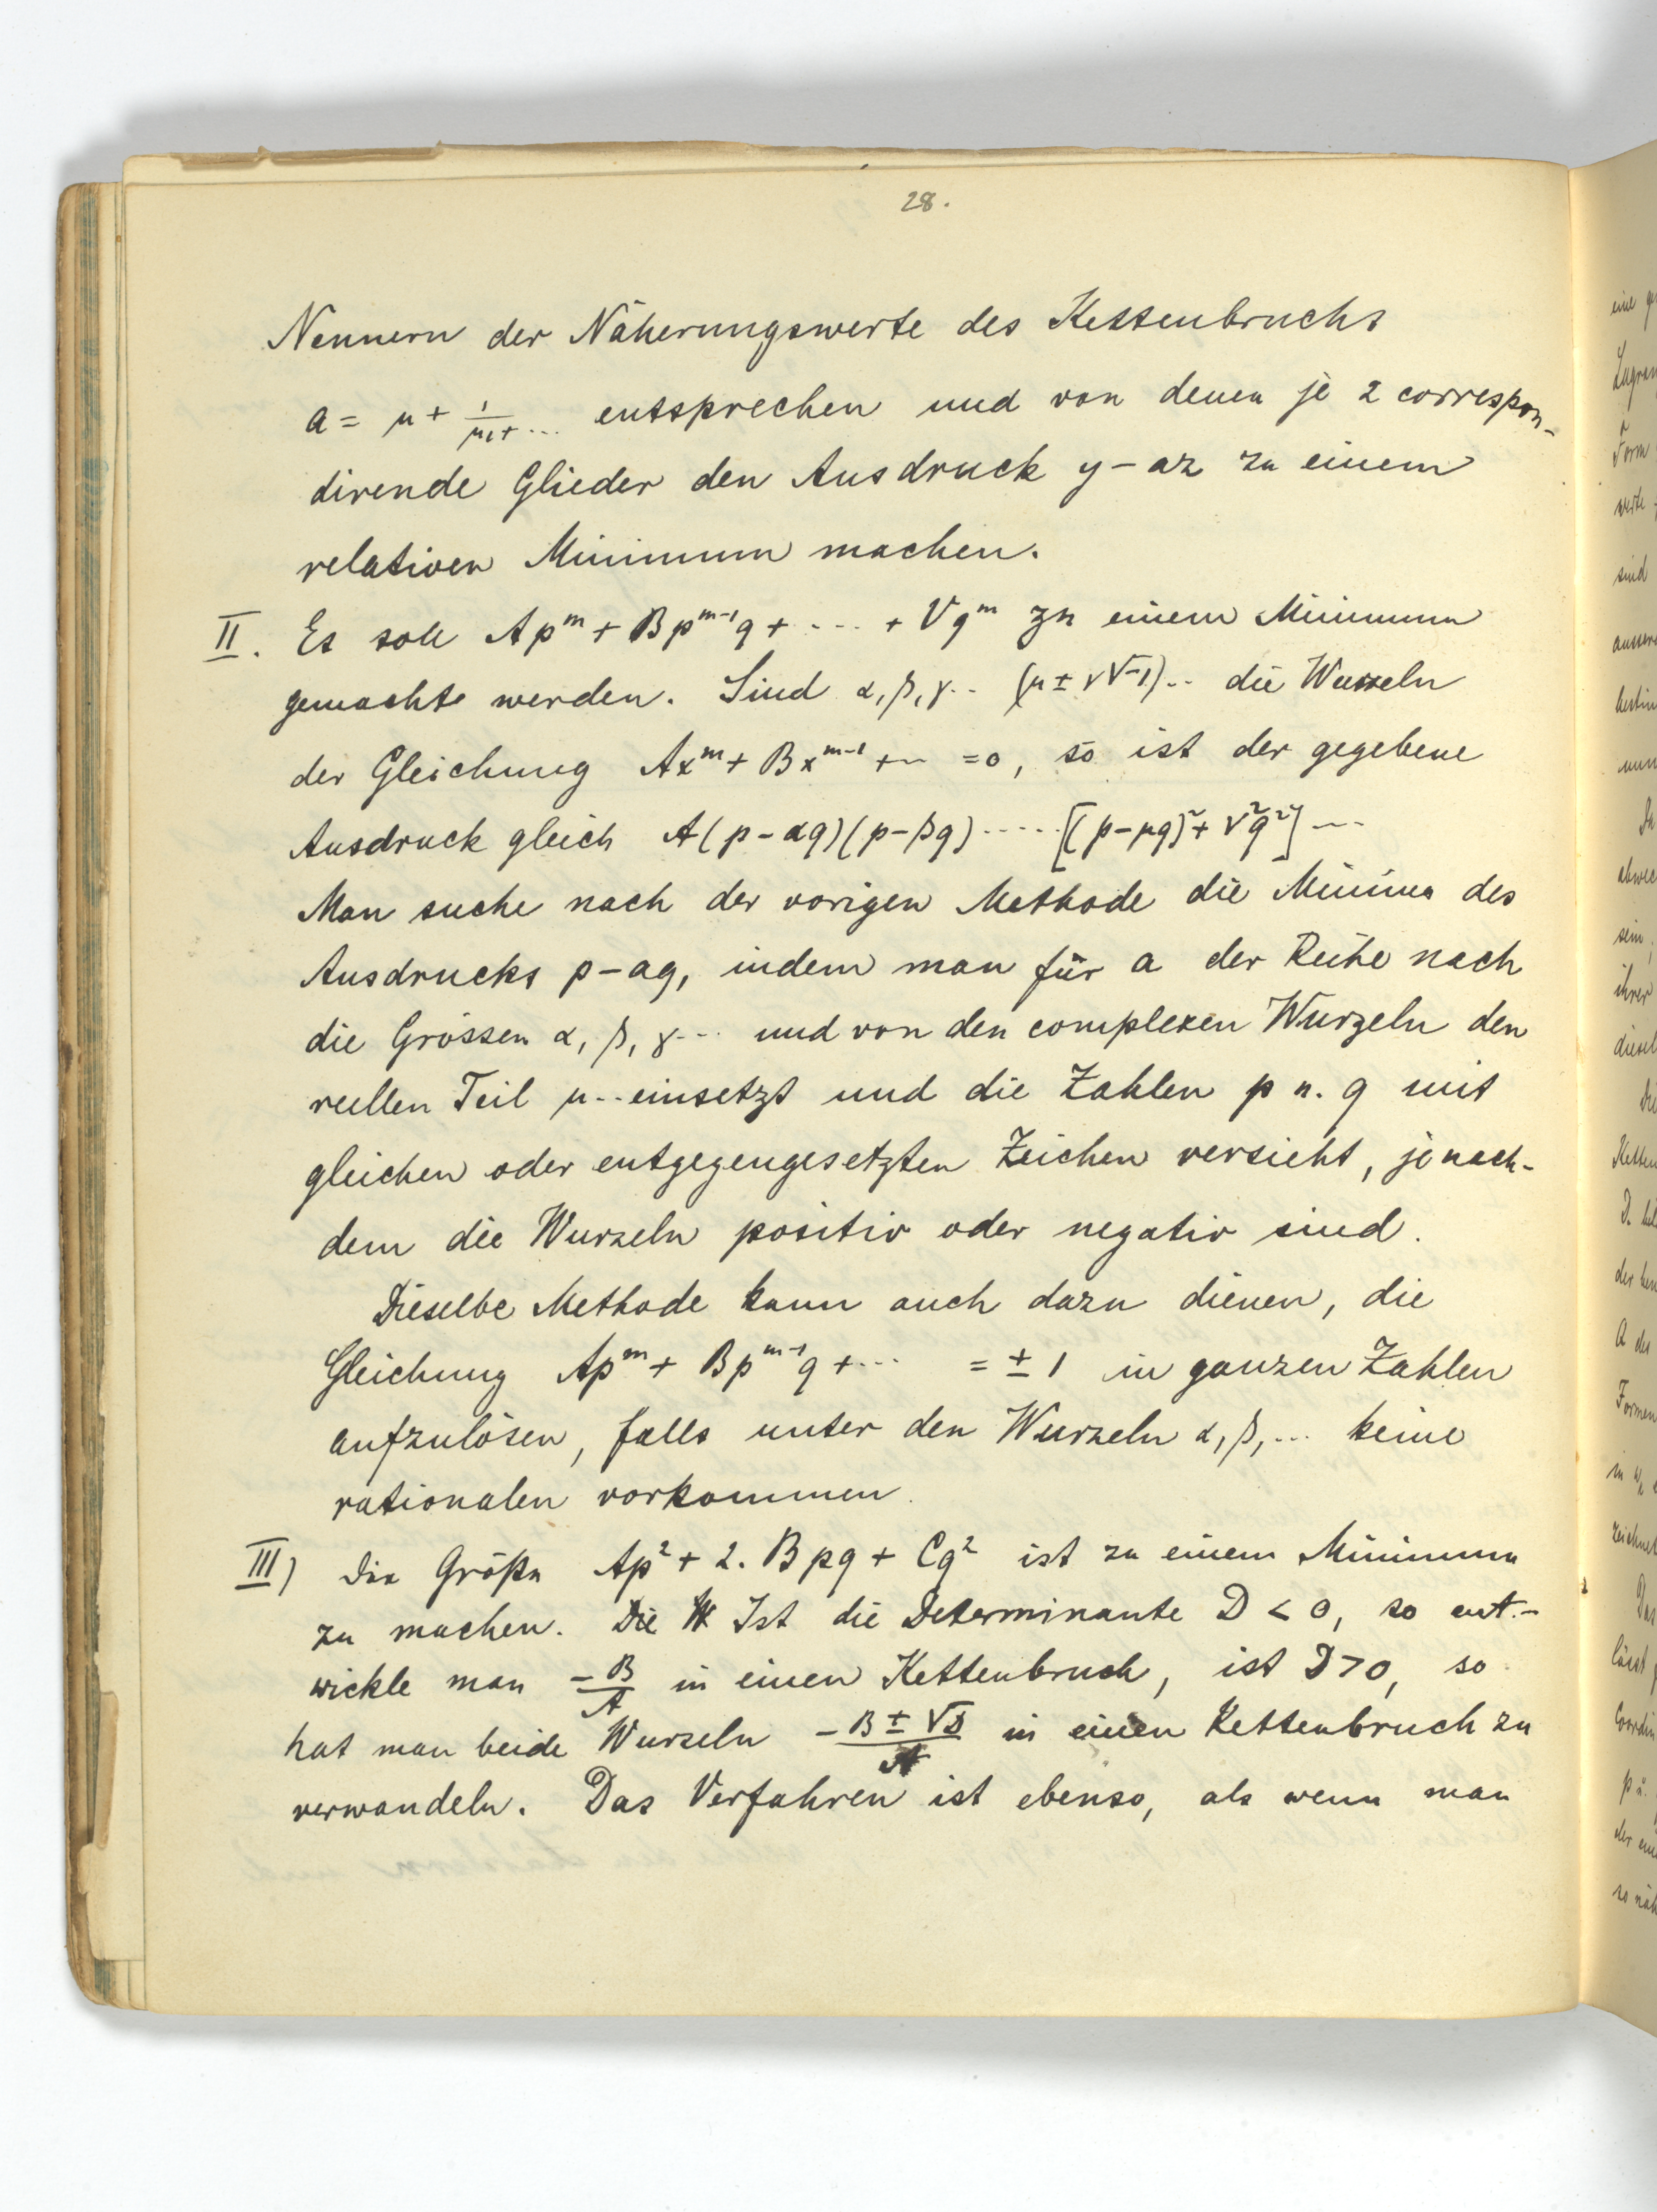 28.
Nennern der Näherungswerte des Kettenbruchs
a = μ + 1/μ₁+ ... entsprechen und von denen je 2 correspon-
dirende Glieder den Ausdruck y – az zu einem
relativen Minimum machen.
II. Es soll Apᵐ + Bpᵐ⁻¹q + ---- + Vqᵐ zu einem Minimum
gemacht werden. Sind α, β, γ.. (μ ± ν√-1).. die Wurzeln
der Gleichung Axᵐ + Bxᵐ⁻¹ + -- = 0, so ist der gegebene
Ausdruck gleich A(p – αq)(p – βq) ..... [(p – μq)² + ν²q²] ---
Man suche nach der vorigen Methode die Minima des
Ausdrucks p – aq, indem man für a der Reihe nach
die Grössen α, β, γ... und von den complexen Wurzeln den
reellen Teil μ.. einsetzt und die Zahlen p u. q mit
gleichen oder entgegengesetzten Zeichen versieht, je nach-
dem die Wurzeln positiv oder negativ sind.
Dieselbe Methode kann auch dazu dienen, die
Gleichung Apᵐ + Bpᵐ⁻¹q + ... = ± 1 in ganzen Zahlen
aufzulösen, falls unter den Wurzeln α, β, ... keine
rationalen vorkommen.
III) Die Größe Ap² + 2. Bpq + Cq² ist zu einem Minimum
zu machen. Die W Ist die Determinante D < 0, so ent-
wickle man –B/A in einen Kettenbruch, ist D > 0, so
hat man beide Wurzeln –B ± √D/A in einen Kettenbruch zu
verwandeln. Das Verfahren ist ebenso, als wenn man